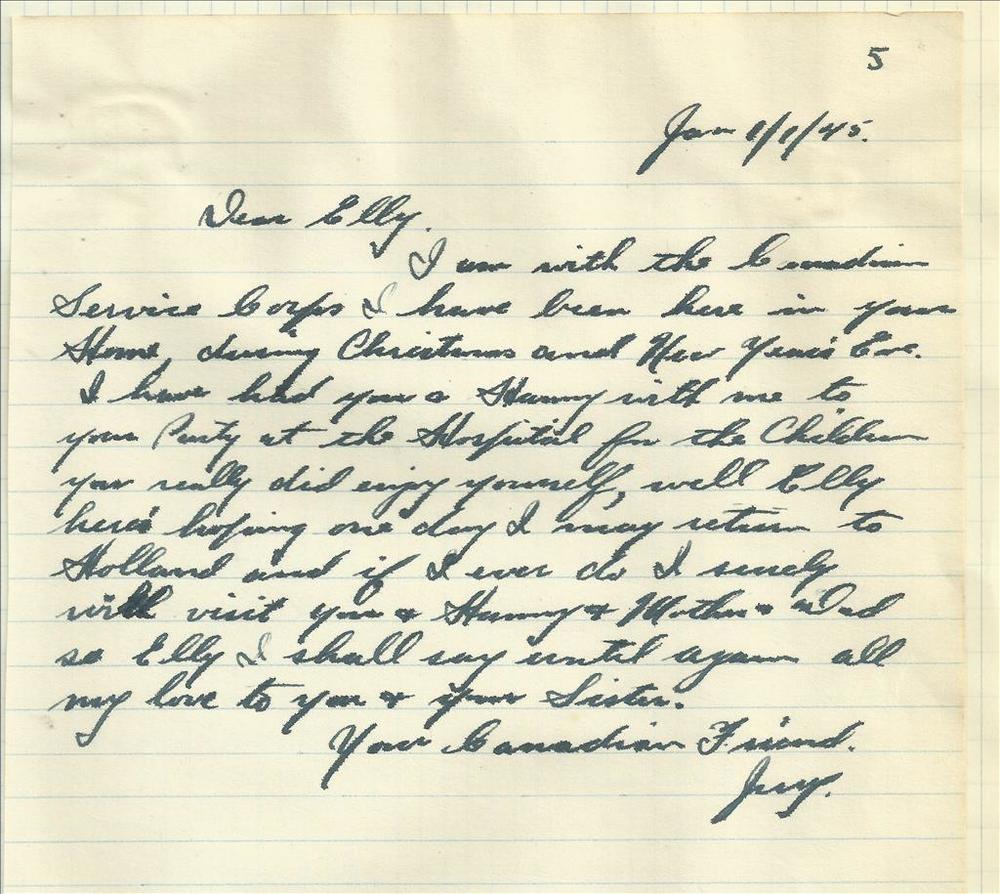 5
Jan 1/1/45.
Dear Elly.
I am with the Canadian
Service Corps I have been here in your
Home, during Christmas and New Year's Eve.
I have had you & Hanny with me to
your Party at the Hospital for the Children
you really did enjoy yourself, well Elly
here's hoping one day I may return to
Holland and if I ever do I surely
will visit you & Hanny & Mother & Dad
so Elly I shall say until again all
my love to you & your Sister.
Your Canadian Friend.